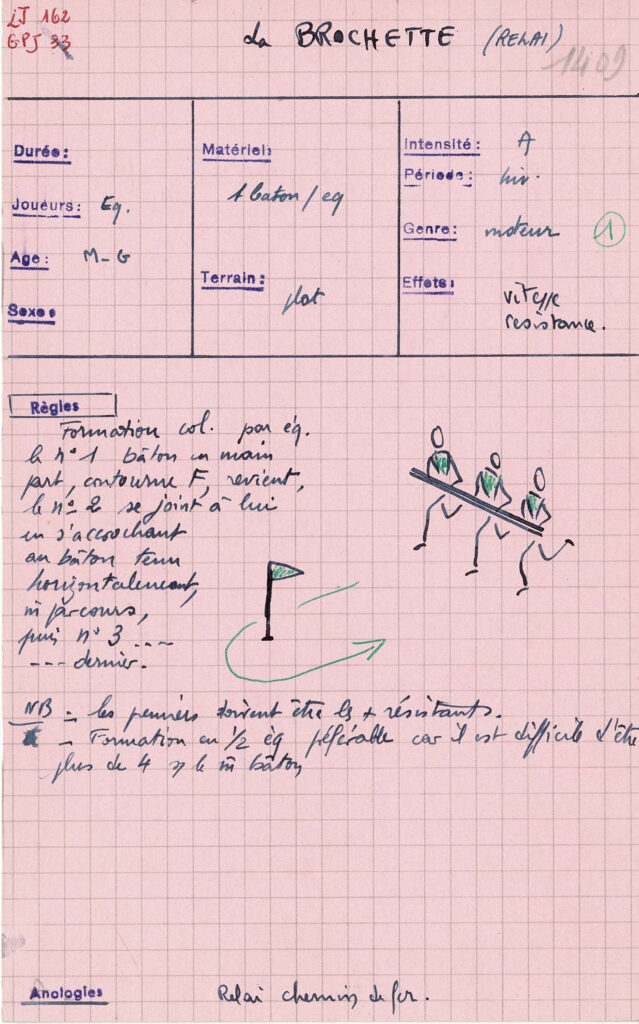 LJ 162
GPJ 33
La BROCHETTE (RELAI)
1409
Durée:
Joueurs: Eq.
Age: M-G
Sexe:
Matériel:
1 baton / eq
Terrain:
plat
Intensité: A
Période: hiv.
Genre: moteur 1
Effets: vitesse
resistance.
Règles
Formation col. par éq.
le n° 1 bâton en main
part, contourne F, revient,
le n° 2 se joint à lui
en s'accrochant
au bâton tenu
horizontalement,
m̄ parcours,
puis n° 3 ....
--- dernier.
NB - les premiers doivent être les + résistants.
- Formation en 1/2 éq préférable car il est difficile d'être
plus de 4 le m̄ bâton
Analogies
Relai chemin de fer.